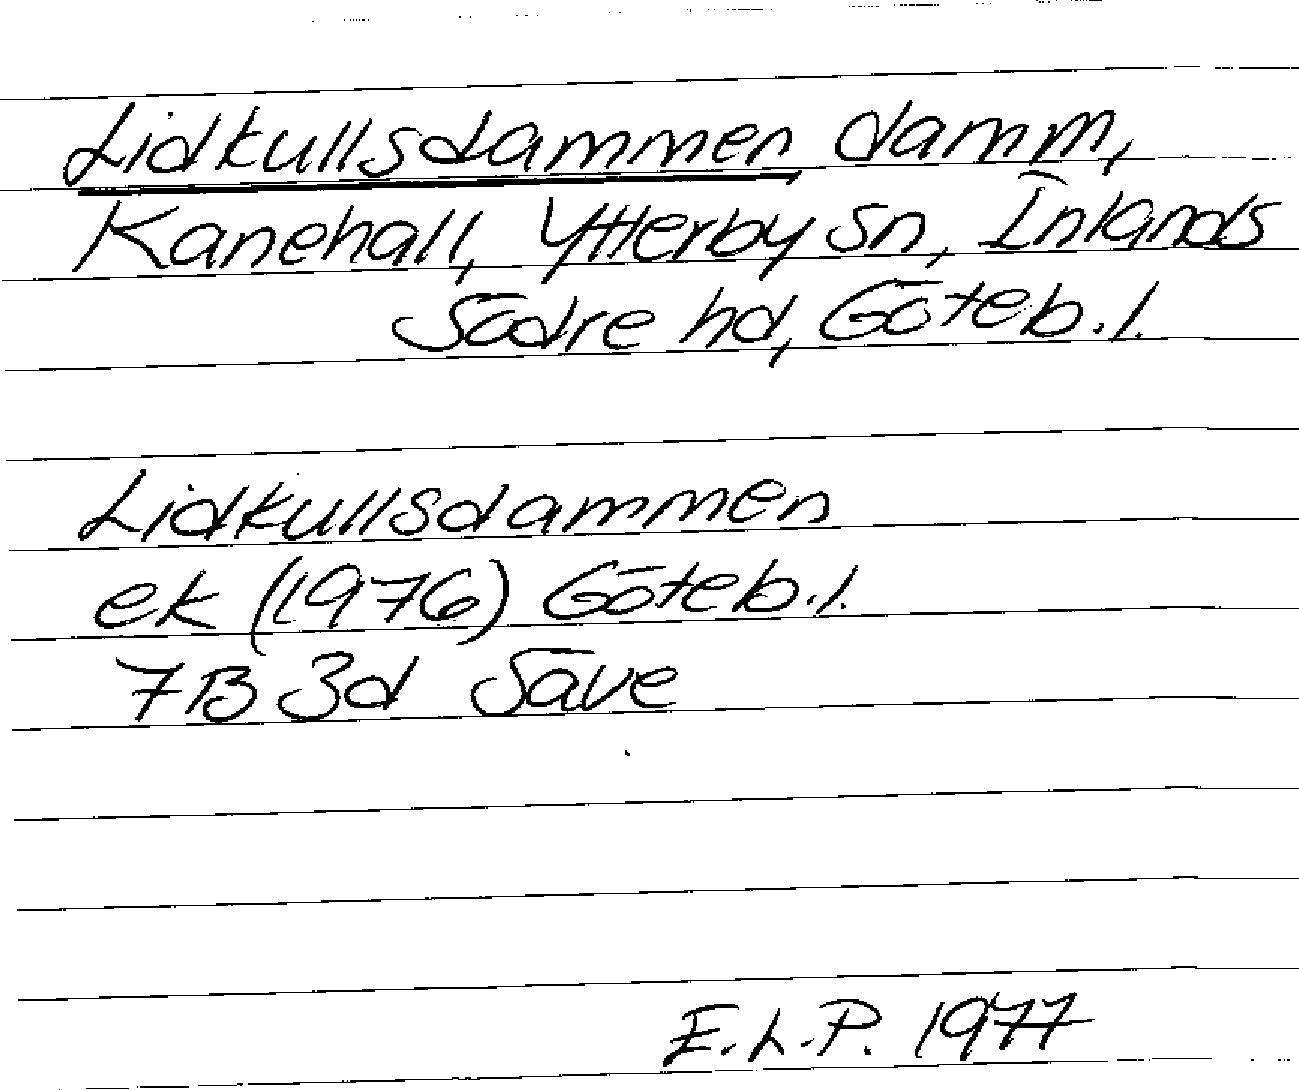 Lidkullsdammen damm,
Kanehall, Ytterby sn, Inlands
Södre hd, Göteb. l.
Lidkullsdammen
ek (1976) Göteb. l.
7B 3d Säve
E.L.P. 1977